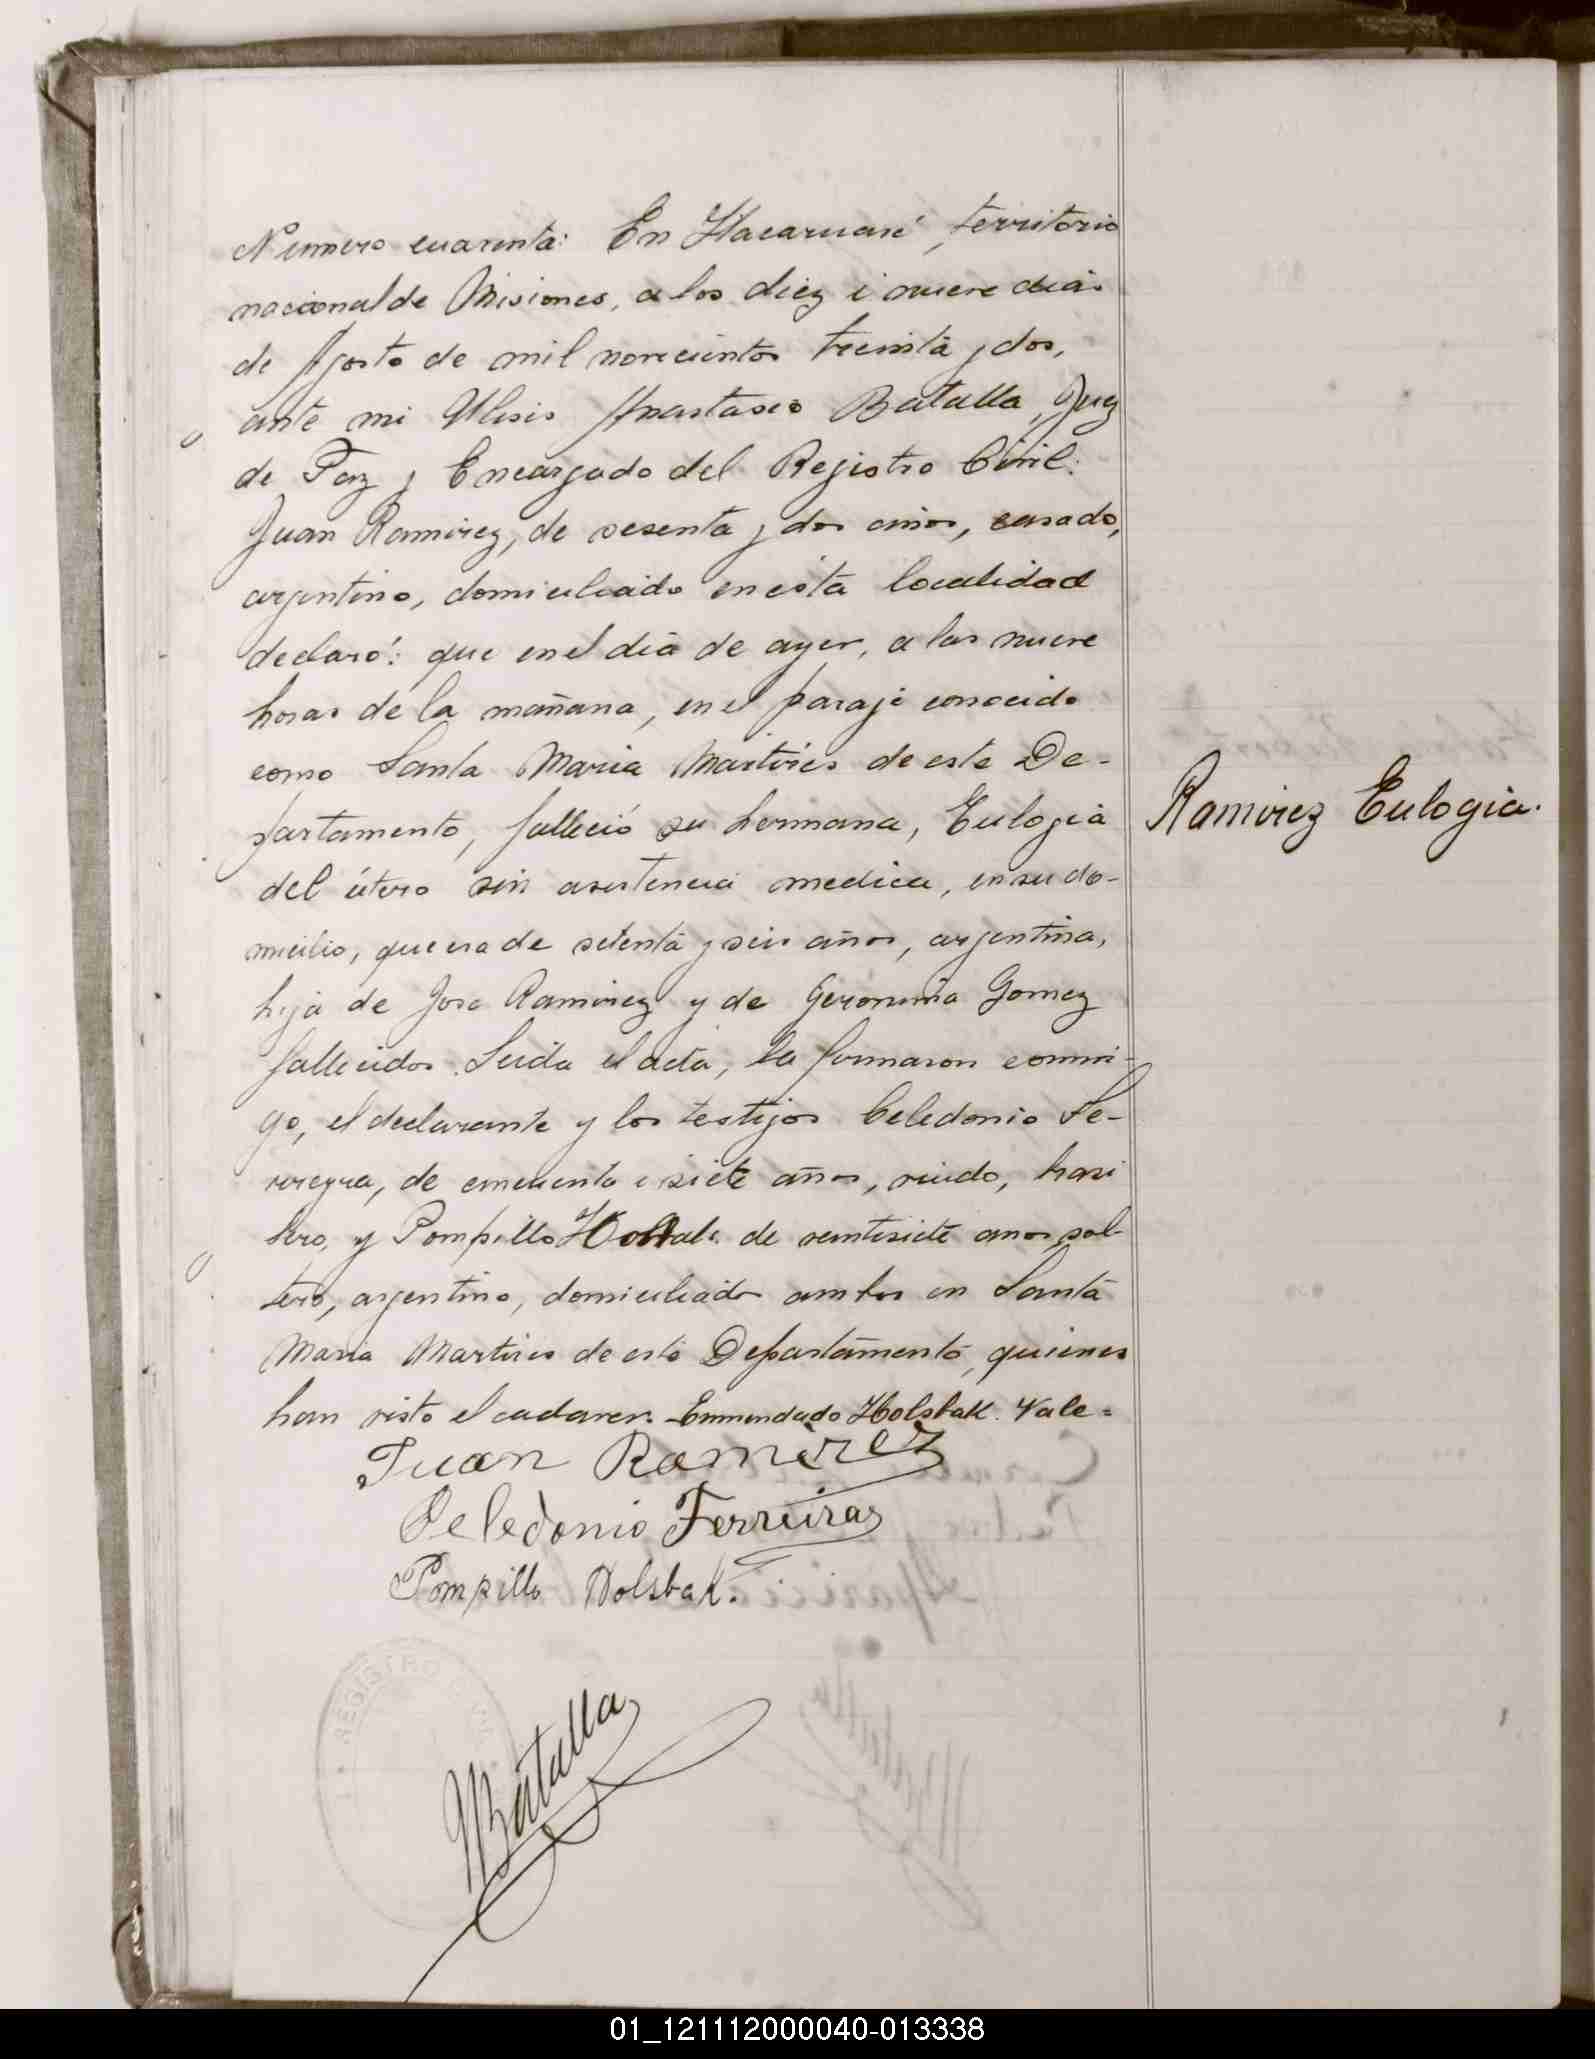 Numero cuarenta: En Itacaruaré, territorio
nacional de Misiones, a los diez i nueve dias
de Agosto de mil novecientos treinta y dos,
ante mi Ulisis Anastasio Batalla, Juez
de Paz y Encargado del Registro Civil:
Juan Ramirez, de sesenta y dos años, casado,
argentino, domiciliado en esta localidad
declaró: que en el dia de ayer, a las nueve
horas de la mañana, en el paraje conocido
como Santa Maria Martires de este De-
partamento, falleció su hermana, Eulogia
Ramirez Eulogia.
del útero sin asistencia medica, en su do-
micilio, que era de setenta y seis años, argentina,
hija de Jose Ramirez y de Geronima Gomez
fallecidos. Leida el acta, la firmaron conmi-
go, el declarante y los testigos Celedonio Fe-
rreyra, de cincuenta i siete años, viudo, brasi
lero, y Pompillo de veintisiete anos, sol-
tero, argentino, domiciliado ambos en Santa
Maria Martires de este Departamento, quienes
han visto el cadaver. Enmendado Holsbak. Vale=
Juan Ramirez
Celedonio Ferreira
Pompillo Holsbak.
REGISTRO
Batalla
01_121112000040-013338